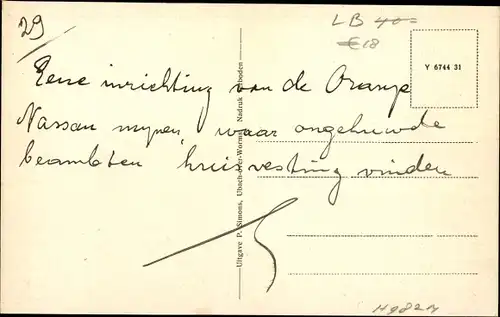 29
LB 40=
€18
Y 6744 31
Eene inrichting van de Oranje
Nassau mynen, waar ongehuwde
beambten huisvesting vinden
Uitgave P. Simons, Ubach-over-Worms Nadruk verboden
H982M